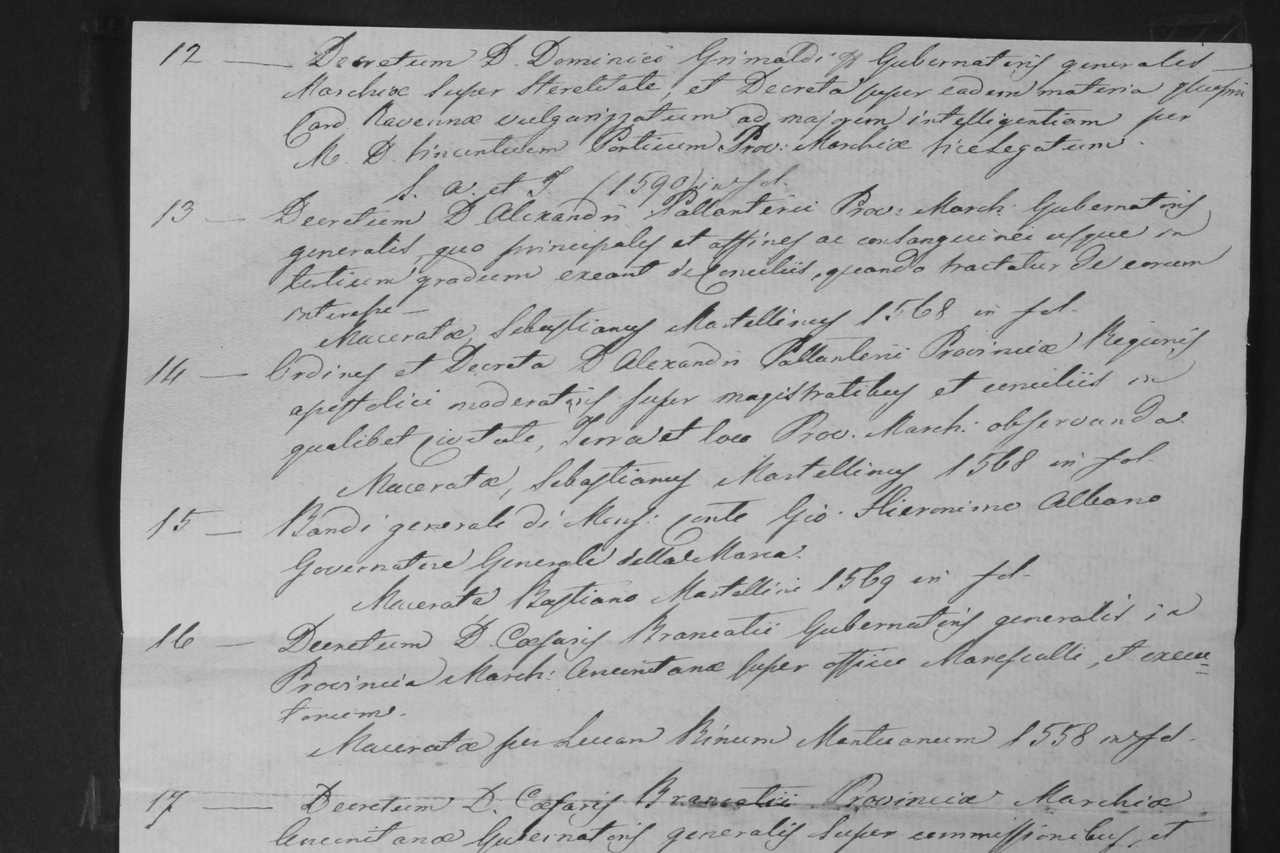 12 — Decretum D. Dominici Grimaldi Gubernatoris generalis
Marchiæ super Sterelitate, et Decreta super eadem materia
Card Ravennæ vulgarizzatum ad majorem intelligentiam per
M. D. Vincentium Porticum Prov: Marchiæ Vicelegatum.
S. a. et T. (1590) in fol.
13 — Decretum D Alexandri Pallanterii Prov: March: Gubernatoris
generalis, quo principales et affines ac consanguinei usque in
tertium gradum exeant de Conciliis, quando tractatur de eorum
interesse —
Maceratæ, Sebastianus Martellinus 1568 in fol.
14 — Ordines et Decreta D Alexandri Pallanterii Provinciæ Regionis
apostolici moderatoris super magistratibus et conciliis in
qualibet civitate, Terra et loco Prov. March: observanda.
Maceratæ, Sebastianus Martellinus 1568 in fol.
15 — Bandi generale di Mons: conte Gio. Hieronimo Albano
Governatore Generale della Marca.
Macerata Bastiano Martellini 1569 in fol.
16 — Decretum D. Cæsaris Brancatii Gubernatoris generalis in
Provincia March: Anconitanæ super officio Marescalli, et execu=
torum.
Maceratæ per Lucan Binum Mantuanum 1558 in fol.
17 — Decretum D. Cæsaris Brancatii Provinciæ Marchiæ
Anconitanæ Gubernatoris generalis super commissionibus, et